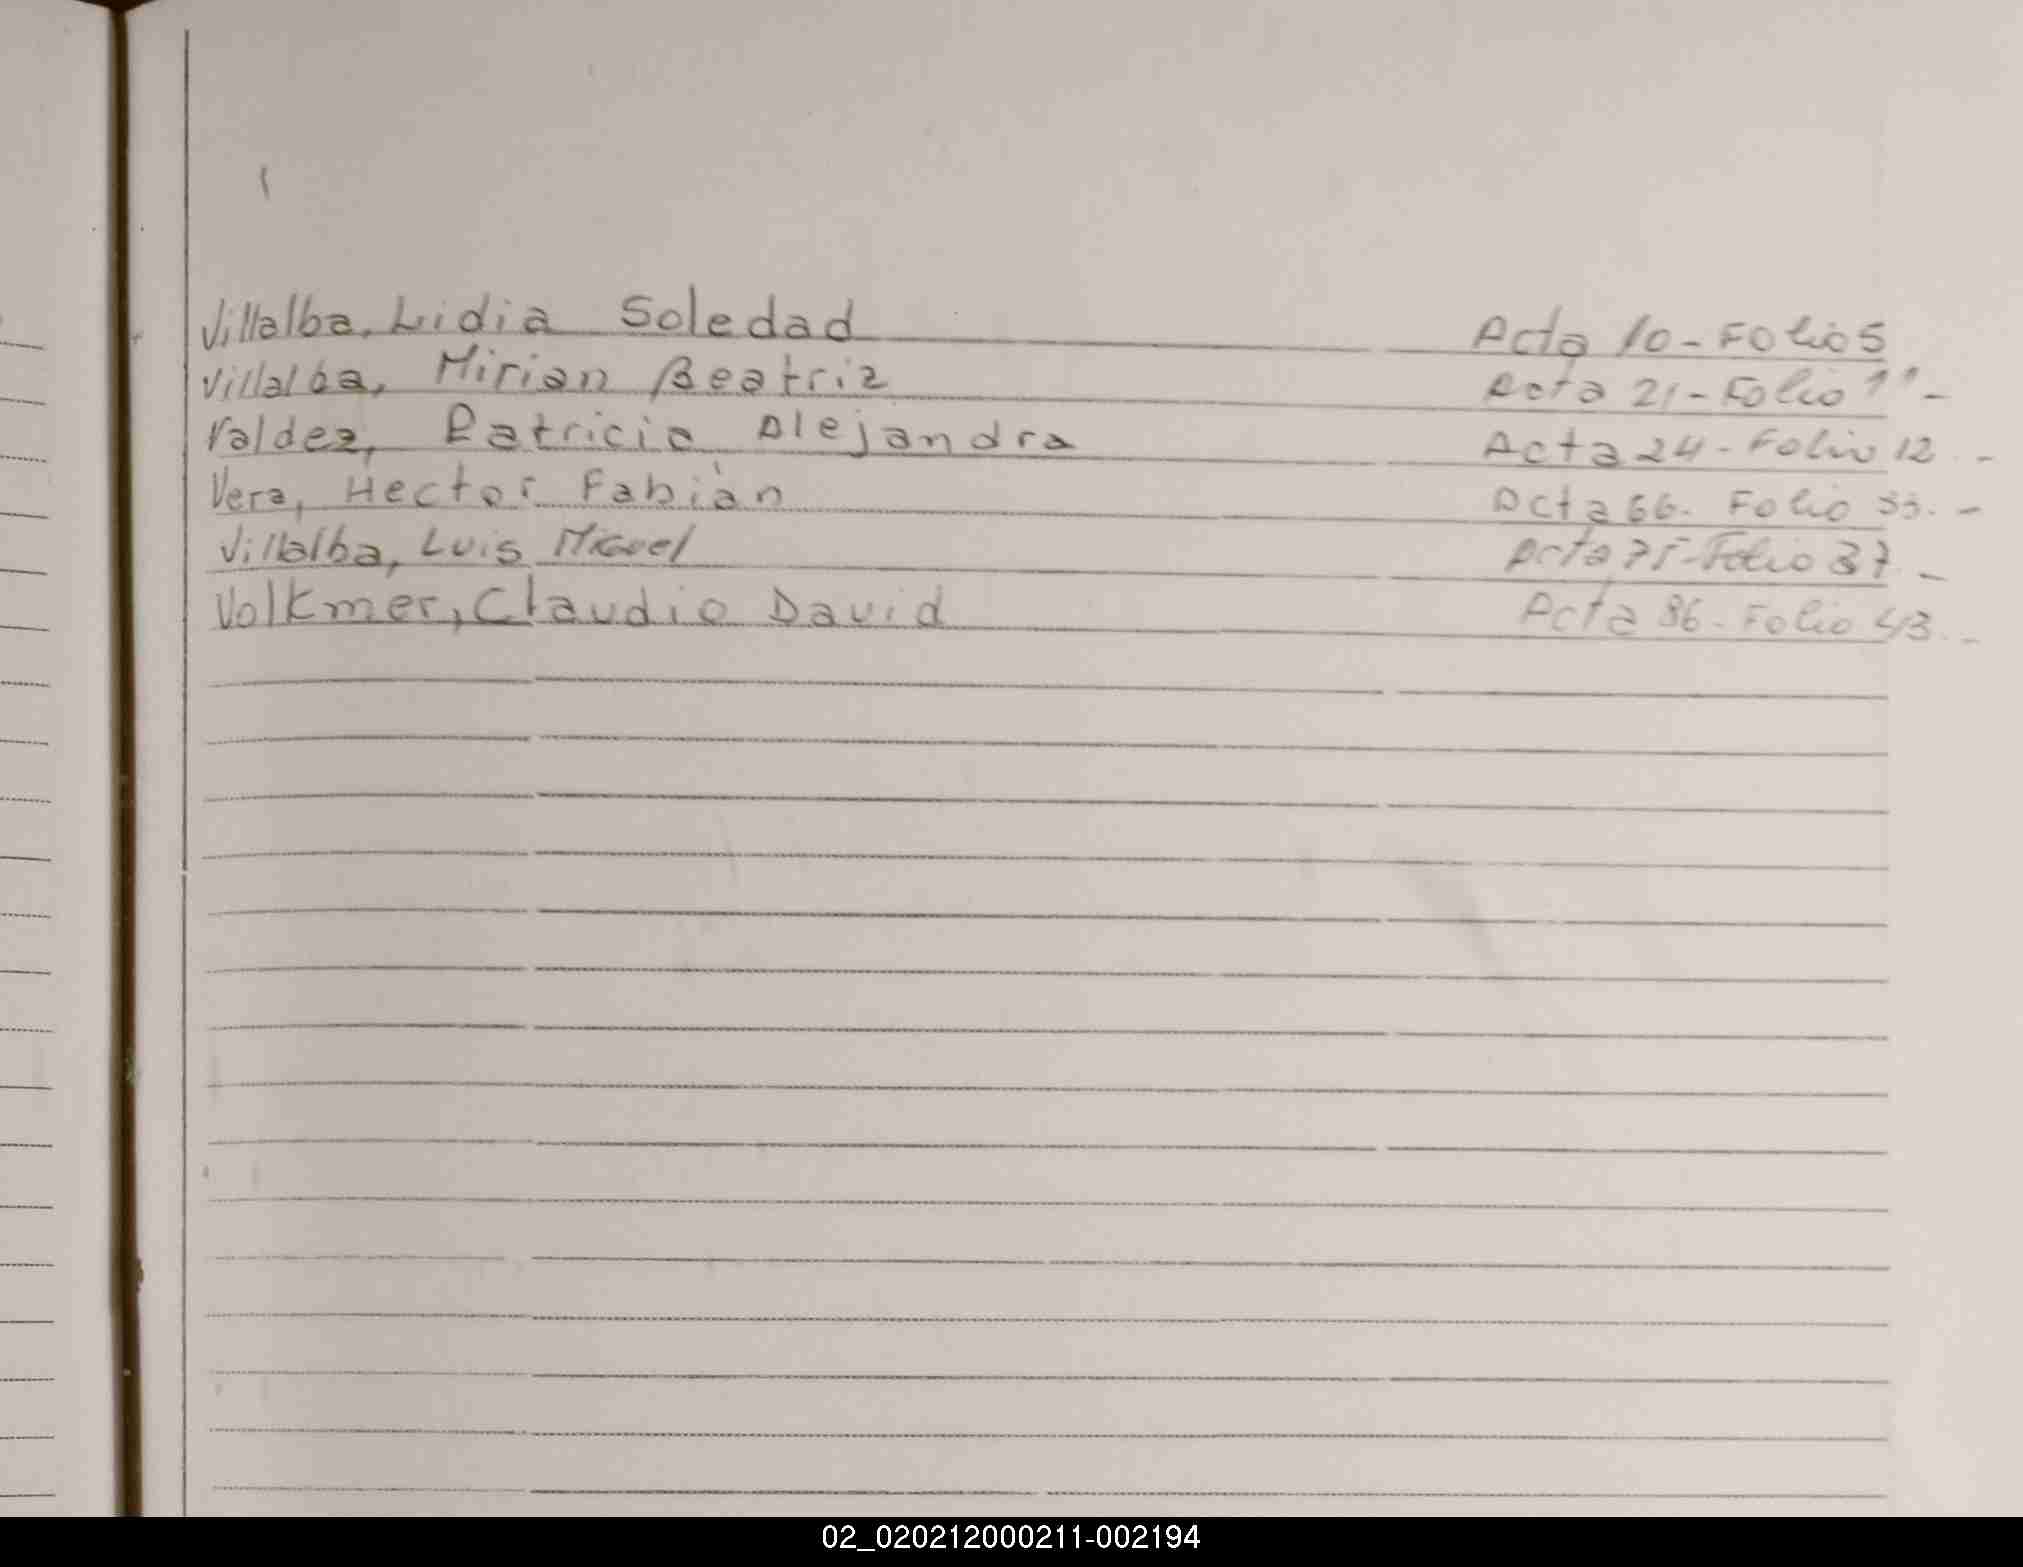 Villalba, Lidia Soledad Acta 10 - Folio 5
Villalba, Mirian Beatriz Acta 21 - Folio 11 -
Valdez, Patricia Alejandra Acta 24 - Folio 12 . -
Vera, Hector Fabián Acta 66. Folio 33. -
Villalba, Luis Miguel Acta 75 - Folio 37 . -
Volkmer, Claudio David Acta 86 - Folio 43 . -
02_020212000211-002194